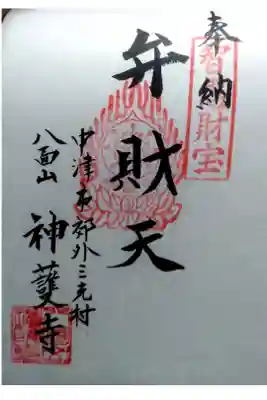 奉納
智福財宝
弁財天
中津市郊外三光村
八面山
神護寺